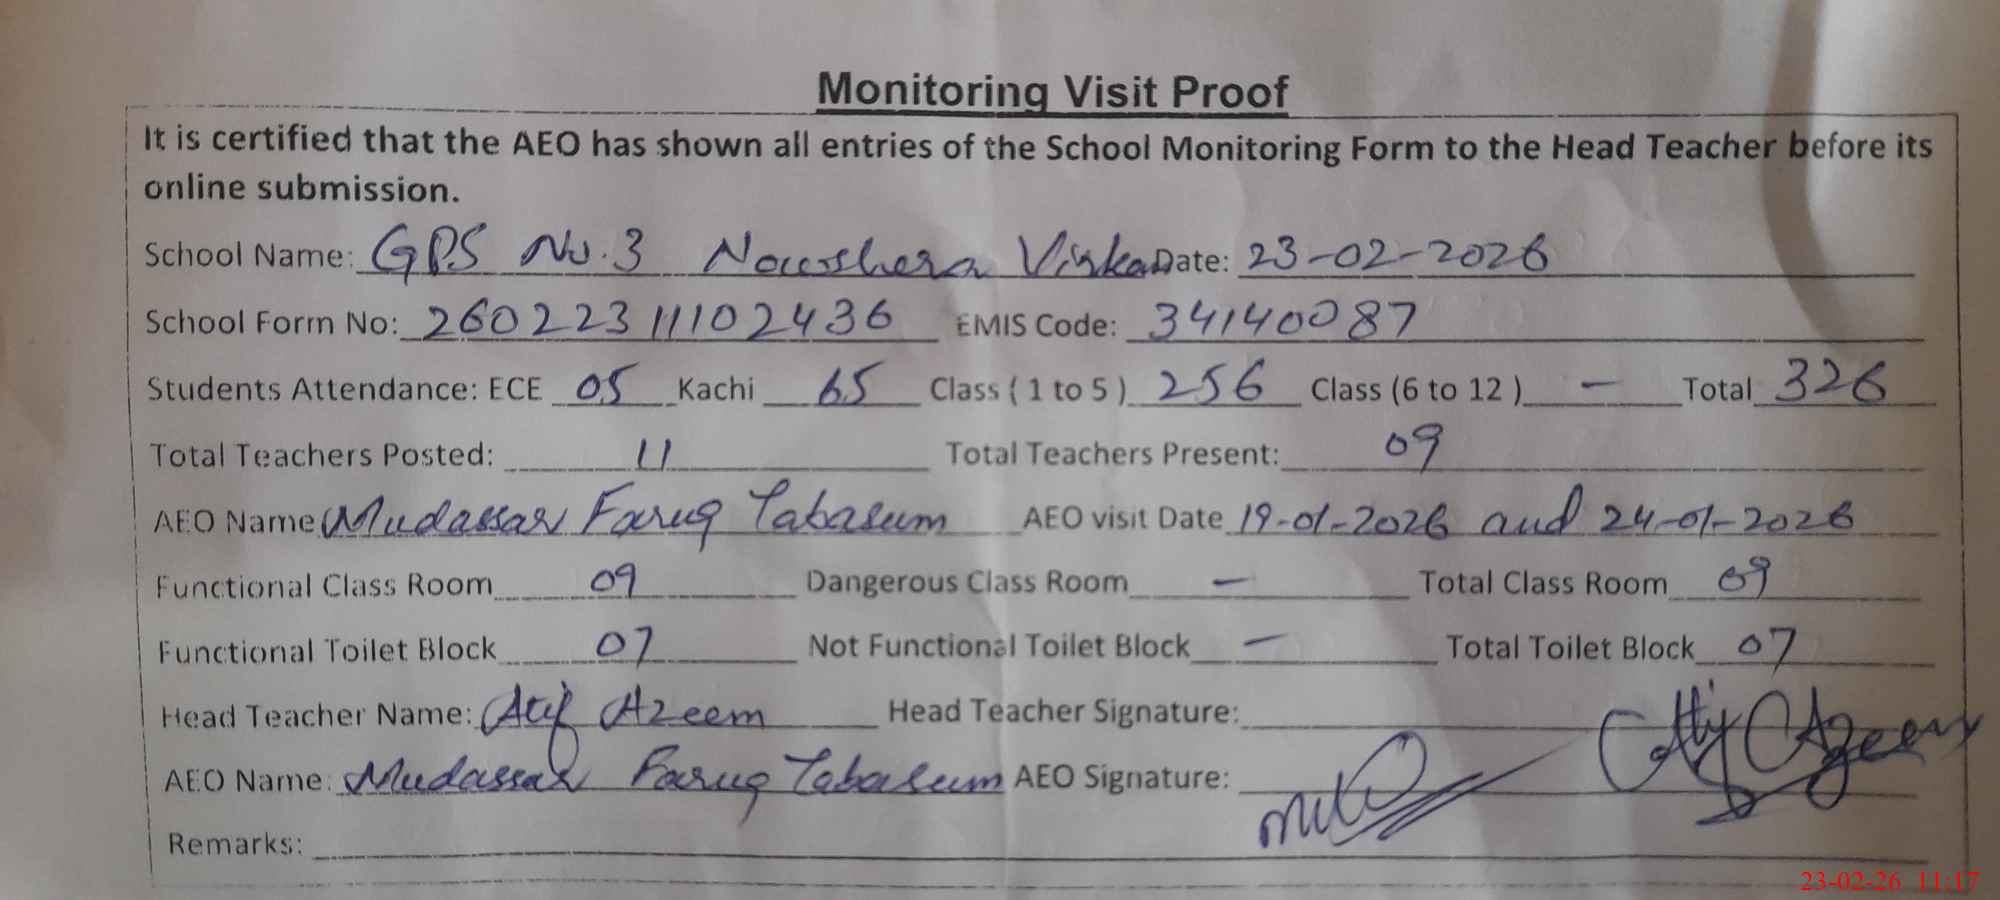 Monitoring Visit Proof
It is certified that the AEO has shown all entries of the School Monitoring Form to the Head Teacher before its
online submission.
School Name: GPS No.3 Nowshera Virka Date: 23-02-2026
School Form No: 26022311102436 EMIS Code: 34140087
Students Attendance: ECE 05 Kachi 65 Class ( 1 to 5 ) 256 Class (6 to 12 ) - Total 326
Total Teachers Posted: 11 Total Teachers Present: 09
AEO Name Mudassar Faruq Tabasum AEO visit Date 19-01-2026 and 24-01-2026
Functional Class Room 09 Dangerous Class Room - Total Class Room 09
Functional Toilet Block 07 Not Functional Toilet Block - Total Toilet Block 07
Head Teacher Name: Atif Azeem Head Teacher Signature: Atif Azeem
AEO Name: Mudassar Faruq Tabasum AEO Signature:
Remarks:
23-02-26 11:17